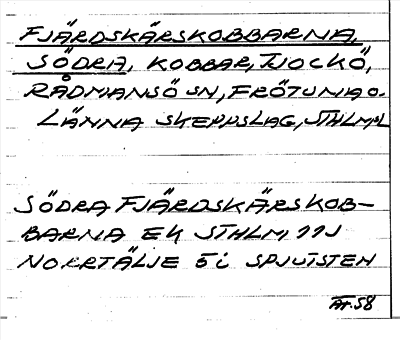 FJÄRDSKÄRSKOBBARNA,
SÖDRA, KOBBAR, TJOCKÖ,
RÅDMANSÖ SN, FRÖTUNA O.
LÄNNA SKEPPSLAG, STHLMSL
SÖDRA FJÄRDSKÄRSKOB-
BARNA EK STHLM 11J
NORRTÄLJE 5i SPJUTSTEN
58